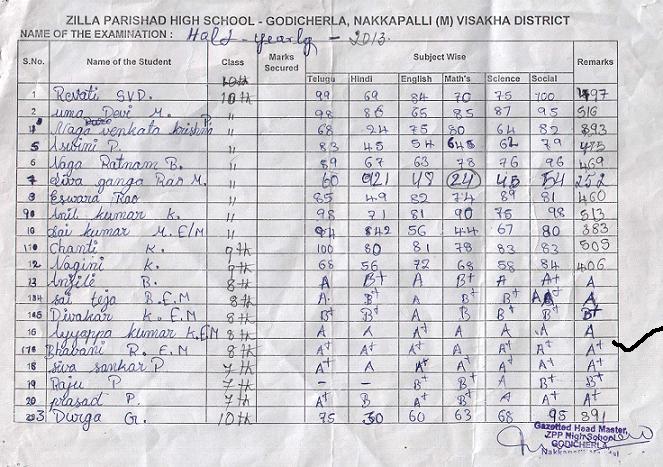 ZILLA PARISHAD HIGH SCHOOL - GODICHERLA, NAKKAPALLI (M) VISAKHA DISTRICT
NAME OF THE EXAMINATION : Half-yearly - 2013.
S.No. Name of the Student Class Marks Secured Subject Wise Remarks
Telugu Hindi English Math's Science Social
1 Revati S.V.D. 10th 99 69 84 70 75 100 497
2 uma Devi M. " 98 86 65 85 87 95 516
Naga venkata krishna P. " 68 24 75 80 64 82 393
5 Asvini P. " 83 45 54 62 79
6 Naga Ratnam B. " 89 67 63 78 76 96 469
7 Siva ganga Rao M. " 60 21 48 24 45 54 252
8 Eswara Rao " 85 49 82 74 89 81 460
9 Anil kumar K. " 98 71 81 90 75 98 513
10 Sai kumar M. E/M " 94 42 56 44 67 80 383
11 Chanti K. 9th 100 80 81 78 83 83 505
12 Nagini K. 9th 68 56 72 68 58 84 406
13 B. 8th A B+ A B+ A A+ A
14 sai teja B.E.M 8th A B+ A B+ B+ A A
Divakar K. E.M 8th B+ B+ A B+ B+ B+ B+
16 Ayyappa kumar K.E.M 8th A A A+ A A A A
17 Bhavani R. E.M 8th A+ A+ A+ A A+ A+ A+
18 siva sankar P 7th A+ A A+ A+ A+ A+ A+
19 Raju P 7th - - B+ B+ A B+ B+
20 prasad P. 7th A+ B A+ A+ A A+ A+
Durga G. 10th 75 30 60 63 68 95 391
Gazetted Head Master,
ZPP High School
GODICHERLA,
Nakkapalli Mandal